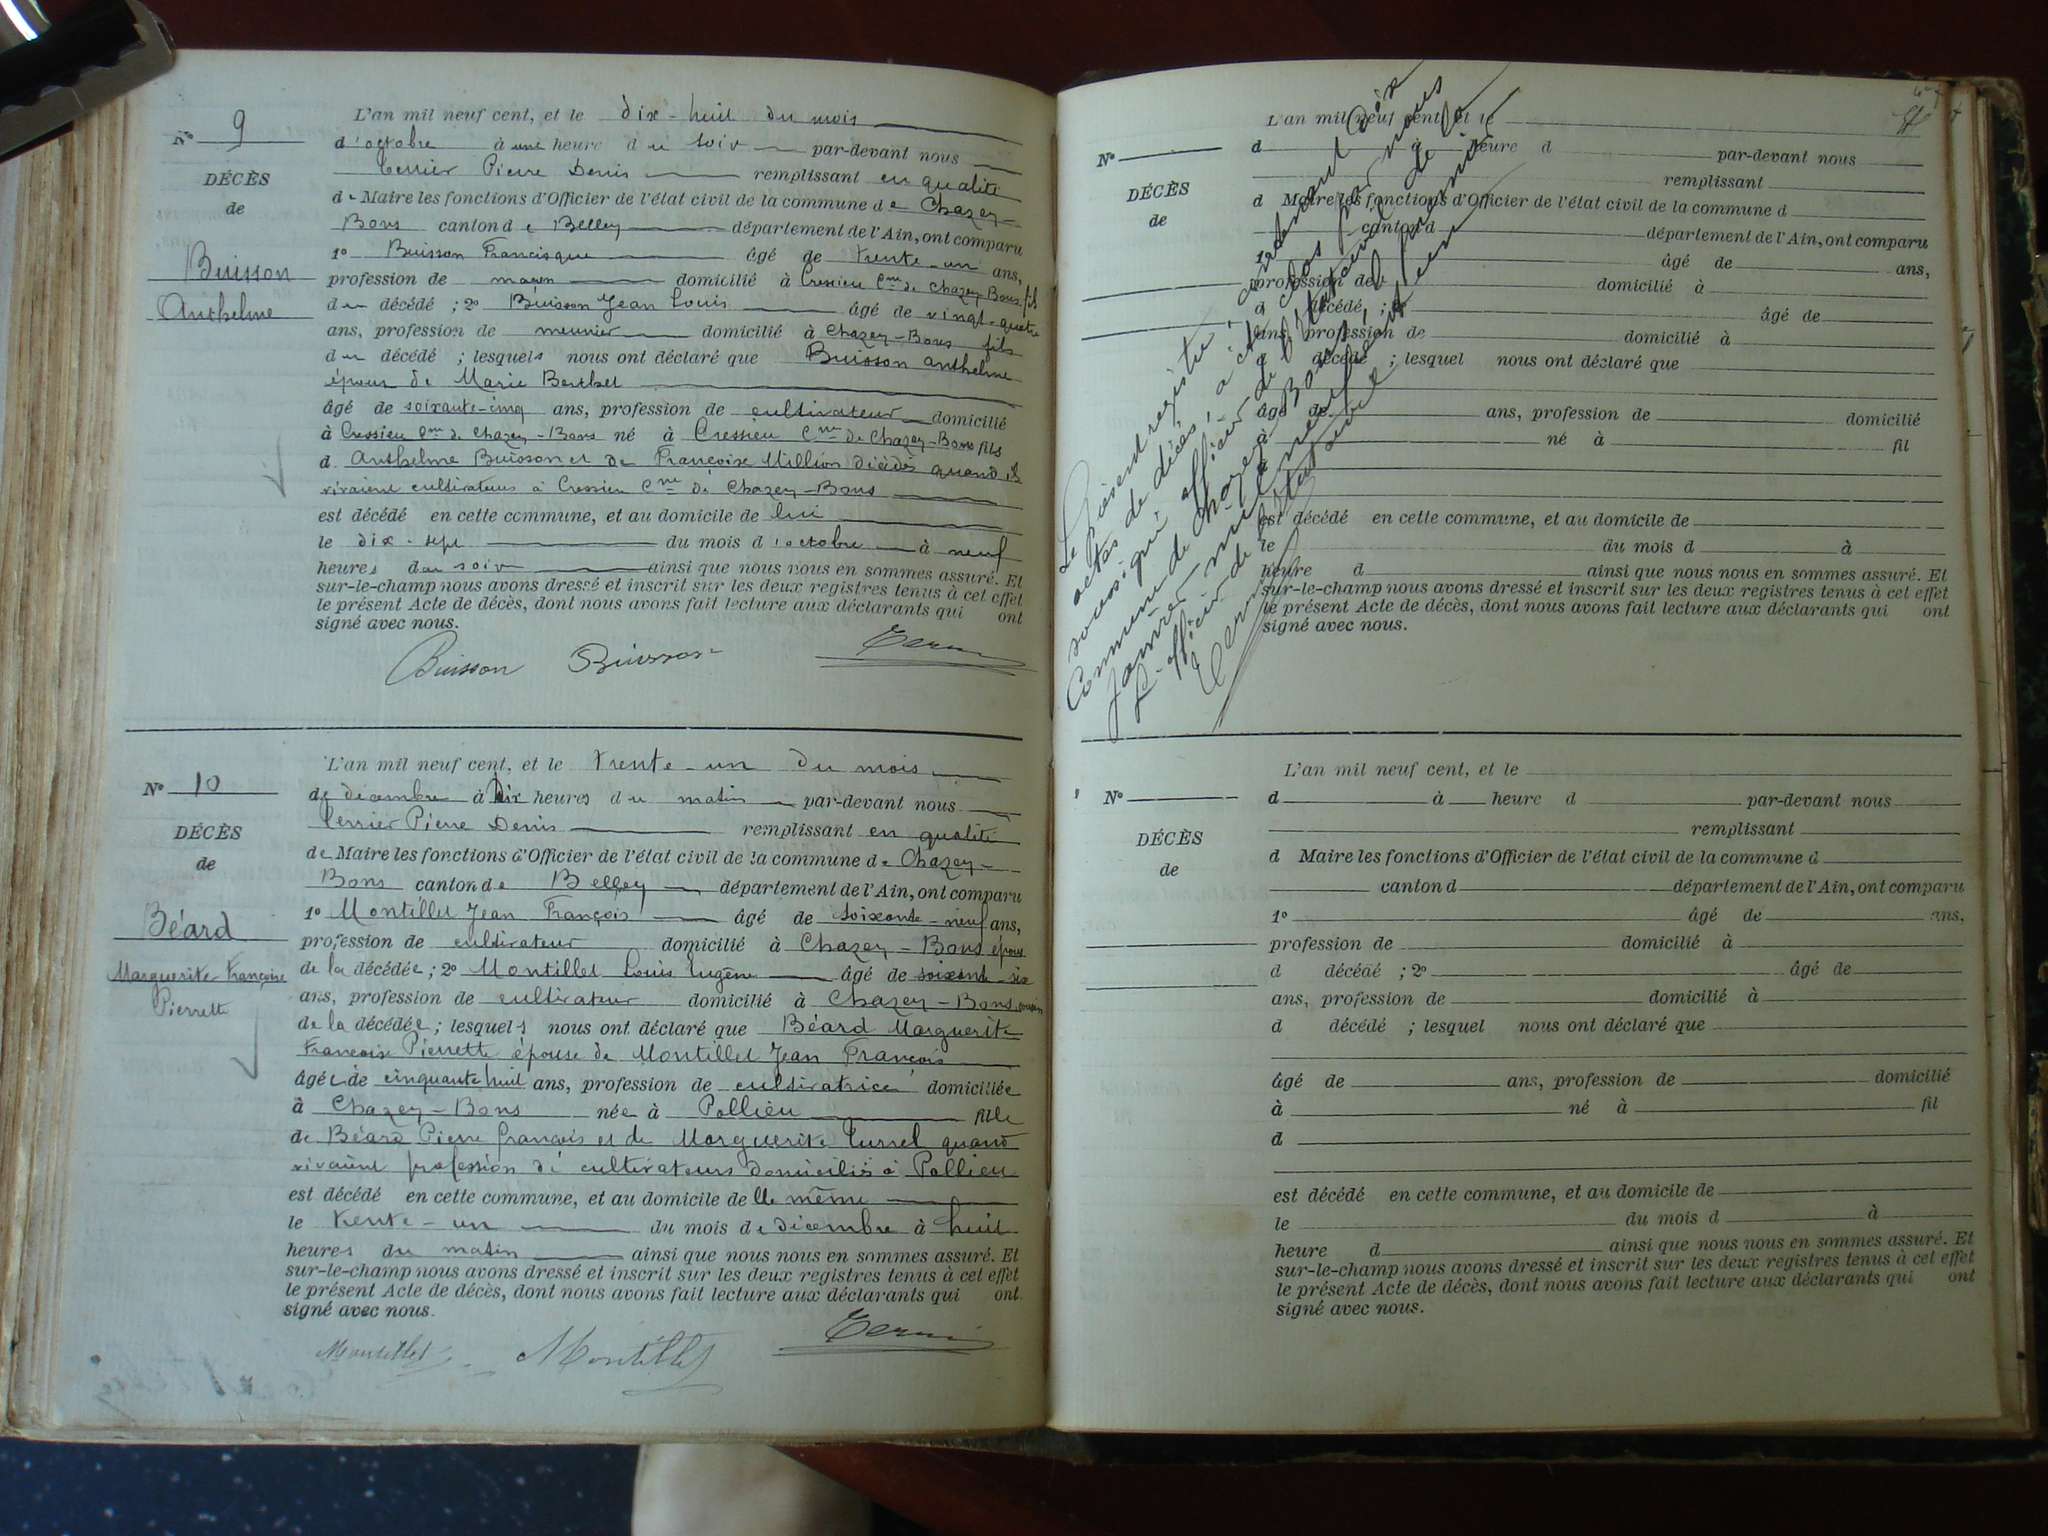 N° 9
DÉCÈS
de
Buisson
Anthelme
L'an mil neuf cent, et le dix-huit du mois
d'octobre à une heure du soir par-devant nous
Terrier Pierre Denis remplissant en qualité
de Maire les fonctions d'Officier de l'état civil de la commune de Chazey-
Bons canton de Belley département de l'Ain, ont comparu
1° Buisson Francisque âgé de trente-un ans,
profession de maçon domicilié à Cressieu Cne de Chazey-Bons fils
du décédé ; 2° Buisson Jean Louis âgé de vingt-quatre
ans, profession de meunier domicilié à Chazey-Bons fils
du décédé ; lesquels nous ont déclaré que Buisson anthelme
époux de Marie Berthet
âgé de soixante-cinq ans, profession de cultivateur domicilié
à Cressieu Cne de Chazey-Bons né à Cressieu Cne de Chazey-Bons fils
d Anthelme Buisson et de Françoise Million décédés quand ils
vivaient cultivateurs à Cressieu Cne de Chazey-Bons
est décédé en cette commune, et au domicile de lui
le dix-sept du mois d'octobre à neuf
heures du soir ainsi que nous nous en sommes assuré. Et
sur-le-champ nous avons dressé et inscrit sur les deux registres tenus à cet effet
le présent Acte de décès, dont nous avons fait lecture aux déclarants qui ont
signé avec nous.
Buisson Buisson
N° 10
DÉCÈS
de
Béard
Marguerite Françoise
Pierrette
L'an mil neuf cent, et le trente-un du mois
de décembre à Dix heures du matin par-devant nous
Terrier Pierre Denis remplissant en qualité
de Maire les fonctions d'Officier de l'état civil de la commune de Chazey-
Bons canton de Belley département de l'Ain, ont comparu
1° Montillet Jean François âgé de soixante-neuf ans,
profession de cultivateur domicilié à Chazey-Bons époux
de la décédée ; 2° Montillet Louis Eugène âgé de soixante-six
ans, profession de cultivateur domicilié à Chazey-Bons cousin
de la décédée ; lesquels nous ont déclaré que Béard Marguerite
Françoise Pierrette épouse de Montillet Jean François
âgée de cinquante huit ans, profession de cultivatrice domiciliée
à Chazey-Bons née à Pollieu fille
de Béard Pierre françois et de Marguerite Turrel quand
vivaient profession de cultivateurs domiciliés à Pollieu
est décédé en cette commune, et au domicile de lle même
le trente-un du mois de décembre à huit
heures du matin ainsi que nous nous en sommes assuré. Et
sur-le-champ nous avons dressé et inscrit sur les deux registres tenus à cet effet
le présent Acte de décès, dont nous avons fait lecture aux déclarants qui ont
signé avec nous.
Montillet Montillet
Le Présent registre contenant dix
actes de décés, a été clos par nous
soussigné officier de l'état civil de la
Commune de Chazey-Bons, le premier
Janvier mil neuf cent un
L'officier de l'état civil
N°
DÉCÈS
de
L'an mil neuf cent, et le
d à heure d par-devant nous
remplissant
d Maire les fonctions d'Officier de l'état civil de la commune d
canton d département de l'Ain, ont comparu
1° âgé de ans,
profession de domicilié à
d décédé ; 2° âgé de
ans, profession de domicilié à
d décédé ; lesquel nous ont déclaré que
âgé de ans, profession de domicilié
à né à fil
d
est décédé en cette commune, et au domicile de
le du mois d à
heure d ainsi que nous nous en sommes assuré. Et
sur-le-champ nous avons dressé et inscrit sur les deux registres tenus à cet effet
le présent Acte de décès, dont nous avons fait lecture aux déclarants qui ont
signé avec nous.
N°
DÉCÈS
de
L'an mil neuf cent, et le
d à heure d par-devant nous
remplissant
d Maire les fonctions d'Officier de l'état civil de la commune d
canton d département de l'Ain, ont comparu
1° âgé de ans,
profession de domicilié à
d décédé ; 2° âgé de
ans, profession de domicilié à
d décédé ; lesquel nous ont déclaré que
âgé de ans, profession de domicilié
à né à fil
d
est décédé en cette commune, et au domicile de
le du mois d à
heure d ainsi que nous nous en sommes assuré. Et
sur-le-champ nous avons dressé et inscrit sur les deux registres tenus à cet effet
le présent Acte de décès, dont nous avons fait lecture aux déclarants qui ont
signé avec nous.